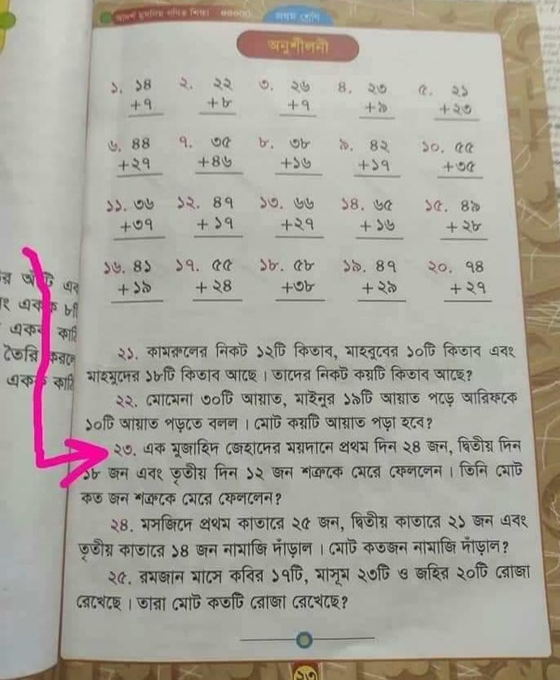 আদর্শ মুসলিম গণিত শিক্ষা
প্রথম শ্রেণি
অনুশীলনী
১. ১৪ ২. ২২ ৩. ২৬ ৪. ২৩ ৫. ২১
+৭ +৮ +৭ +৯ +২৩
৬. ৪৪ ৭. ৩৫ ৮. ৩৮ ৯. ৪২ ১০. ৫৫
+২৭ +৪৬ +১৬ +১৭ +৩৫
১১. ৩৬ ১২. ৪৭ ১৩. ৬৬ ১৪. ৬৫ ১৫. ৪৯
+৩৭ + ১৭ +২৭ +১৬ +২৮
১৬. ৪১ ১৭. ৫৫ ১৮. ৫৮ ১৯. ৪৭ ২০. ৭৪
+১৯ + ২৪ +৩৮ +২৯ +২৭
২১. কামরুলের নিকট ১২টি কিতাব, মাহবুবের ১০টি কিতাব এবং
মাহমুদের ১৮টি কিতাব আছে। তাদের নিকট কয়টি কিতাব আছে?
২২. মোমেনা ৩০টি আয়াত, মাইনুর ১৯টি আয়াত পড়ে আরিফকে
১০টি আয়াত পড়তে বলল। মোট কয়টি আয়াত পড়া হবে?
২৩. এক মুজাহিদ জেহাদের ময়দানে প্রথম দিন ২৪ জন, দ্বিতীয় দিন
১৮ জন এবং তৃতীয় দিন ১২ জন শত্রুকে মেরে ফেললেন। তিনি মোট
কত জন শত্রুকে মেরে ফেললেন?
২৪. মসজিদে প্রথম কাতারে ২৫ জন, দ্বিতীয় কাতারে ২১ জন এবং
তৃতীয় কাতারে ১৪ জন নামাজি দাঁড়াল। মোট কতজন নামাজি দাঁড়াল?
২৫. রমজান মাসে কবির ১৭টি, মাসুম ২৩টি ও জহির ২০টি রোজা
রেখেছে। তারা মোট কতটি রোজা রেখেছে?
২৩